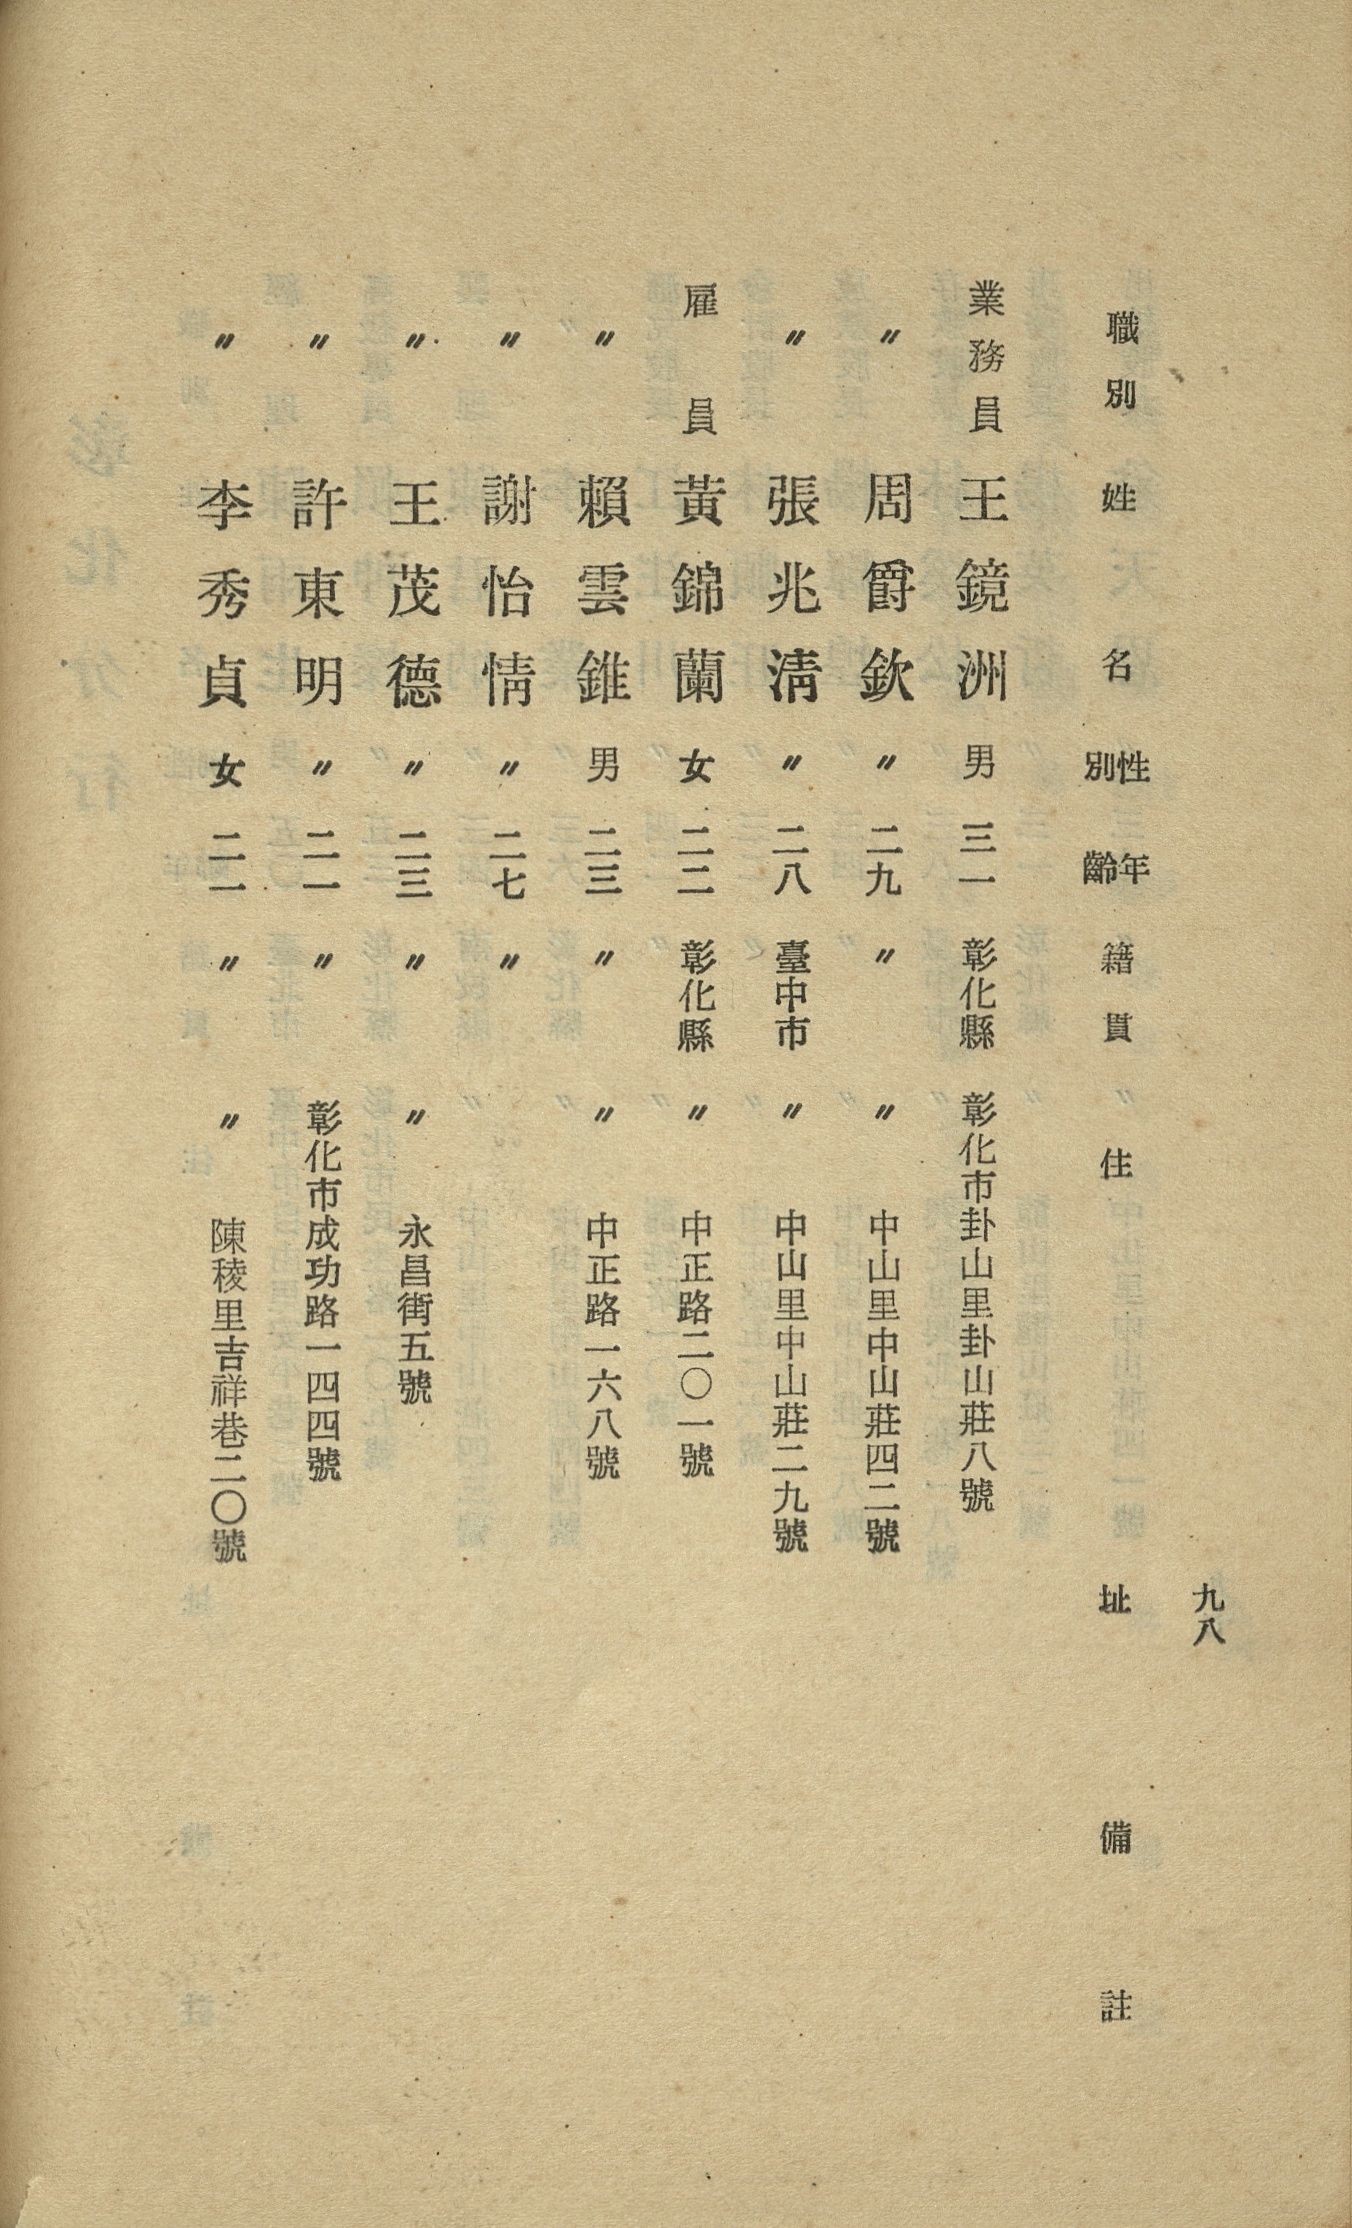 九八
職別 姓名 性別 年齡 籍貫 住址 備註
業務員 王鏡洲 男 三一 彰化縣 彰化市卦山里卦山莊八號
〃 周爵欽 〃 二九 〃 〃 中山里中山莊四二號
〃 張兆清 〃 二八 臺中市 〃 中山里中山莊二九號
雇員 黃錦蘭 女 二二 彰化縣 〃 中正路二〇一號
〃 賴雲錐 男 二三 〃 〃 中正路一六八號
〃 謝怡情 〃 二七 〃
〃 王茂德 〃 二三 〃 〃 永昌街五號
〃 許東明 〃 二一 〃 彰化市成功路一四四號
〃 李秀貞 女 二一 〃 〃 陳稜里吉祥巷二〇號